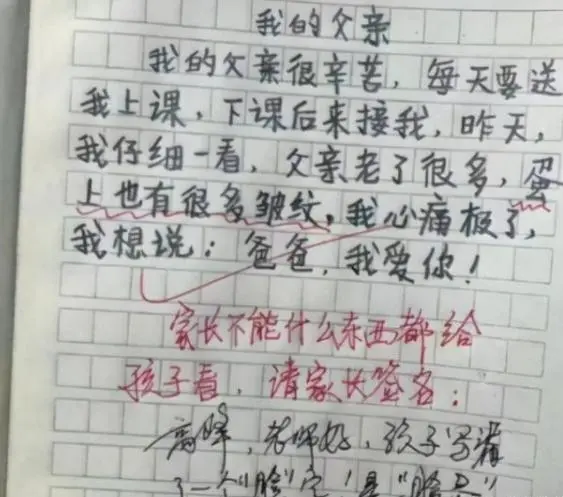 我的父亲
我的父亲很辛苦，每天要送
我上课，下课后来接我，昨天，
我仔细一看，父亲老了很多，蛋
上也有很多皱纹，我心痛极了，
我想说：爸爸，我爱你！
家长不能什么东西都给
孩子看，请家长签名：
高峰，老师好，孩子写漏
了一个"脸"字，是"脸蛋"